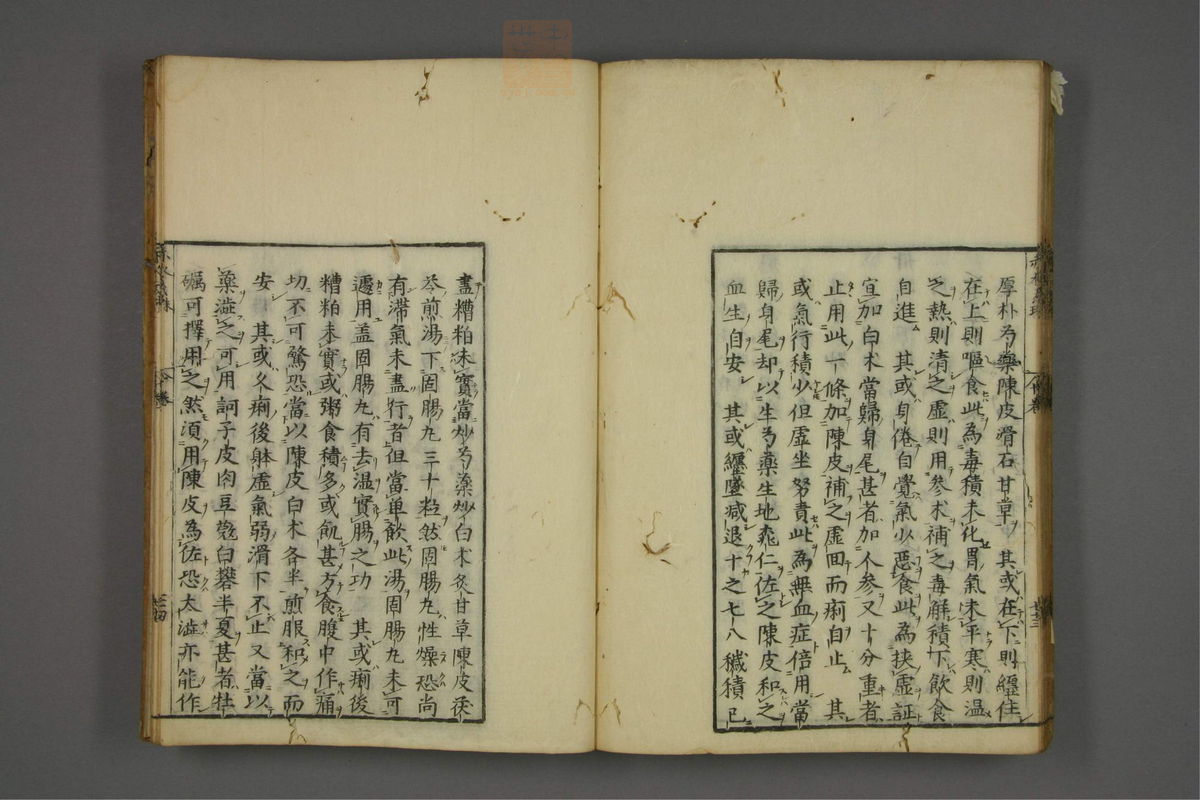 厚朴芍藥陳皮滑石甘草　其或在下則纏住
在上則嘔食此為毒積未化胃氣未平寒則温
之熱則清之虚則用参术補之毒解積下飲食
自進　其或身倦自覺氣少惡食此為挟虚証
宜加白术當歸身尾甚者加人参又十分重者
止用此一條加陳皮補之虚回而痢自止　其
或氣行積少但虚坐努責此為無血症倍用當
歸身尾却以生芍藥生地桃仁佐之陳皮和之
血生自安　其或纏墜減退十之七八穢積已
盡糟粕未實當炒芍藥炒白术炙甘草陳皮茯
苓煎湯下固腸丸三十粒然固腸丸性燥恐尚
有滯氣未盡行者但當单飲此湯固腸丸未可
遽用盖固腸丸有去温實腸之功　其或痢後
糟粕未實或粥食積多或飢甚方食腹中作痛
切不可驚恐當以陳皮白术各半煎服和之而
安　其或久痢後躰虚氣弱滑下不止又當以
藥澁之可用訶子皮肉豆蔲白礬半夏甚者牡
礪可擇用之然須用陳皮為佐恐太澁亦能作